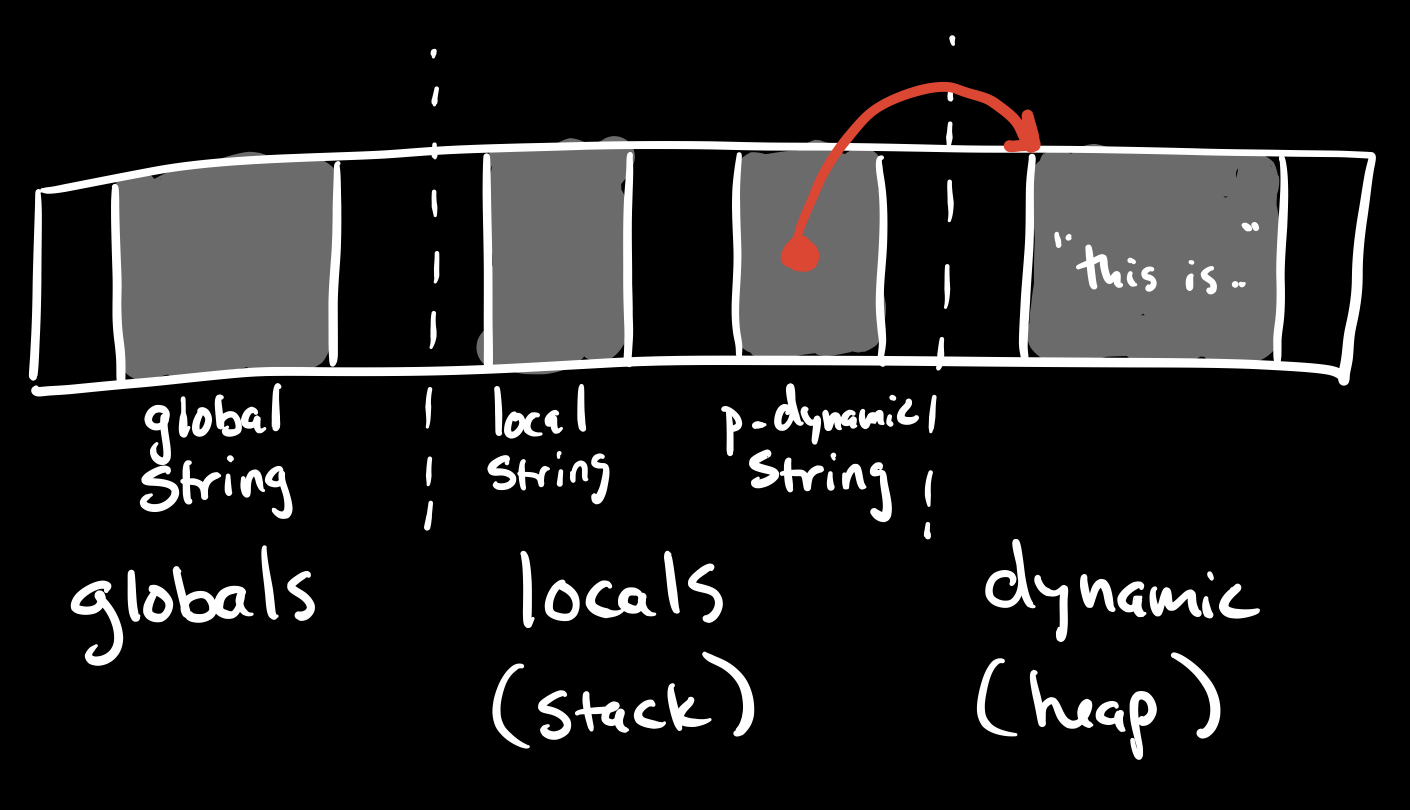 "this is.."
global
string
local
string
p-dynamic
string
globals
locals
(stack)
dynamic
(heap)